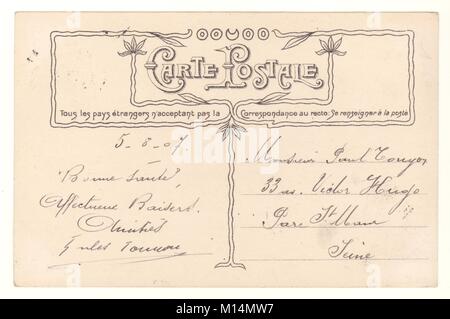 CARTE POSTALE
Tous les pays étrangers n'acceptant pas la Correspondance au recto: Se renseigner à la poste
5-8-07
Bonne Santé,
Affectueux Baisers.
Amitiés
Monsieur Paul
33 av. Victor Hugo
Parc St Maur
Seine
alamy stock photo
M14MW7